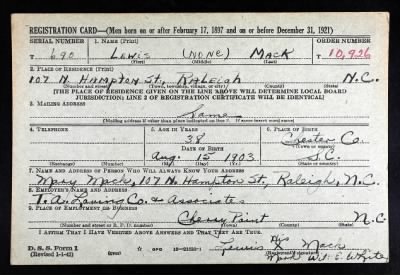 REGISTRATION CARD—(Men born on or after February 17, 1897 and on or before December 31, 1921)
SERIAL NUMBER 1. NAME (Print) ORDER NUMBER
690 Lewis (NONE) Mack 10,926
(First) (Middle) (Last)
2. PLACE OF RESIDENCE (Print)
107 N. Hampton St, Raleigh N.C.
(Number and street) (Town, township, village, or city) (County) (State)
[THE PLACE OF RESIDENCE GIVEN ON THE LINE ABOVE WILL DETERMINE LOCAL BOARD
JURISDICTION; LINE 2 OF REGISTRATION CERTIFICATE WILL BE IDENTICAL]
3. MAILING ADDRESS
Same
[Mailing address if other than place indicated on line 2. If same insert word same]
4. TELEPHONE 5. AGE IN YEARS 6. PLACE OF BIRTH
38 Chester Co.
DATE OF BIRTH (Town or county)
Aug. 15 1903 S.C.
(Exchange) (Number) (Mo.) (Day) (Yr.) (State or country)
7. NAME AND ADDRESS OF PERSON WHO WILL ALWAYS KNOW YOUR ADDRESS
Mary Mack, 107 N. Hampton St, Raleigh, N.C.
8. EMPLOYER'S NAME AND ADDRESS
T. A. Loving Co. & Associates
9. PLACE OF EMPLOYMENT OR BUSINESS
Cherry Point N C
(Number and street or R. F. D. number) (Town) (County) (State)
I AFFIRM THAT I HAVE VERIFIED ABOVE ANSWERS AND THAT THEY ARE TRUE.
D. S. S. Form 1
(Revised 1-1-42) GPO Lewis X Mack
Mark Wt. E. White